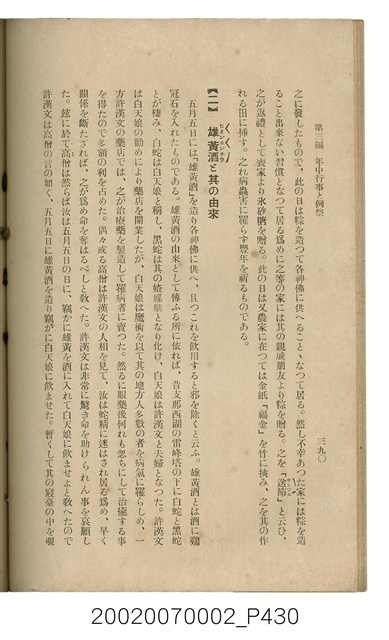 第三編　年中行事と例祭
三九〇
之に發したもので、此の日は粽を造つて各神佛に供へること丶なつて居る。然し不幸あつた家には粽を造
ること出來ない習慣となつて居る爲めに之等の家には其の親戚朋友より粽を贈る。之を「送節」と云ひ、
之が返禮として喪家より氷砂糖を贈る。此の日は又農家に在つては金紙「福金」を竹に挾み、之を其の作
れる田に挿す。之れ病蟲害に罹らず豐年を祈るものである。
【二】　雄黃酒と其の由來
五月五日には「雄黃酒」を造り各神佛に供へ、且つこれを飮用すると邪を除くと云ふ。雄黃酒とは酒に鷄
冠石を入れたものである。雄黃酒の由來として傳ふる所に依れば、昔支那西湖の雷峰塔の下に白蛇と黑蛇
とが棲み、白蛇は白天娘と稱し、黑蛇は其の婢となり化け、白天娘は許漢文と夫婦となつた。許漢文
は白天娘の勸めにより藥店を開業したが、白天娘は魔術を以て其の地方人多數の者を病氣に罹らしめ、一
方許漢文の藥店では、之が治療藥を製造して罹病者に賣つた。然るに服藥後何れも忽ちにして治癒する事
を得たので多額の利を占めた。偶々或る高僧は許漢文の人相を見て、汝は蛇精に迷はされ居る爲め、早く
關係を斷たざれば、之が爲め命を奪はるべしと敎へた。許漢文は非常に驚き命を助けられん事を哀願し
た。玆に於て高僧は然らば汝は五月五日の日に、竊かに雄黃を酒に入れて白天娘に飮ませよと敎へたので
許漢文は高僧の言の如く、五月五日に雄黃酒を造り竊かに白天娘に飮ませた。暫くして其の寢臺の中を覗
20020070002_P430